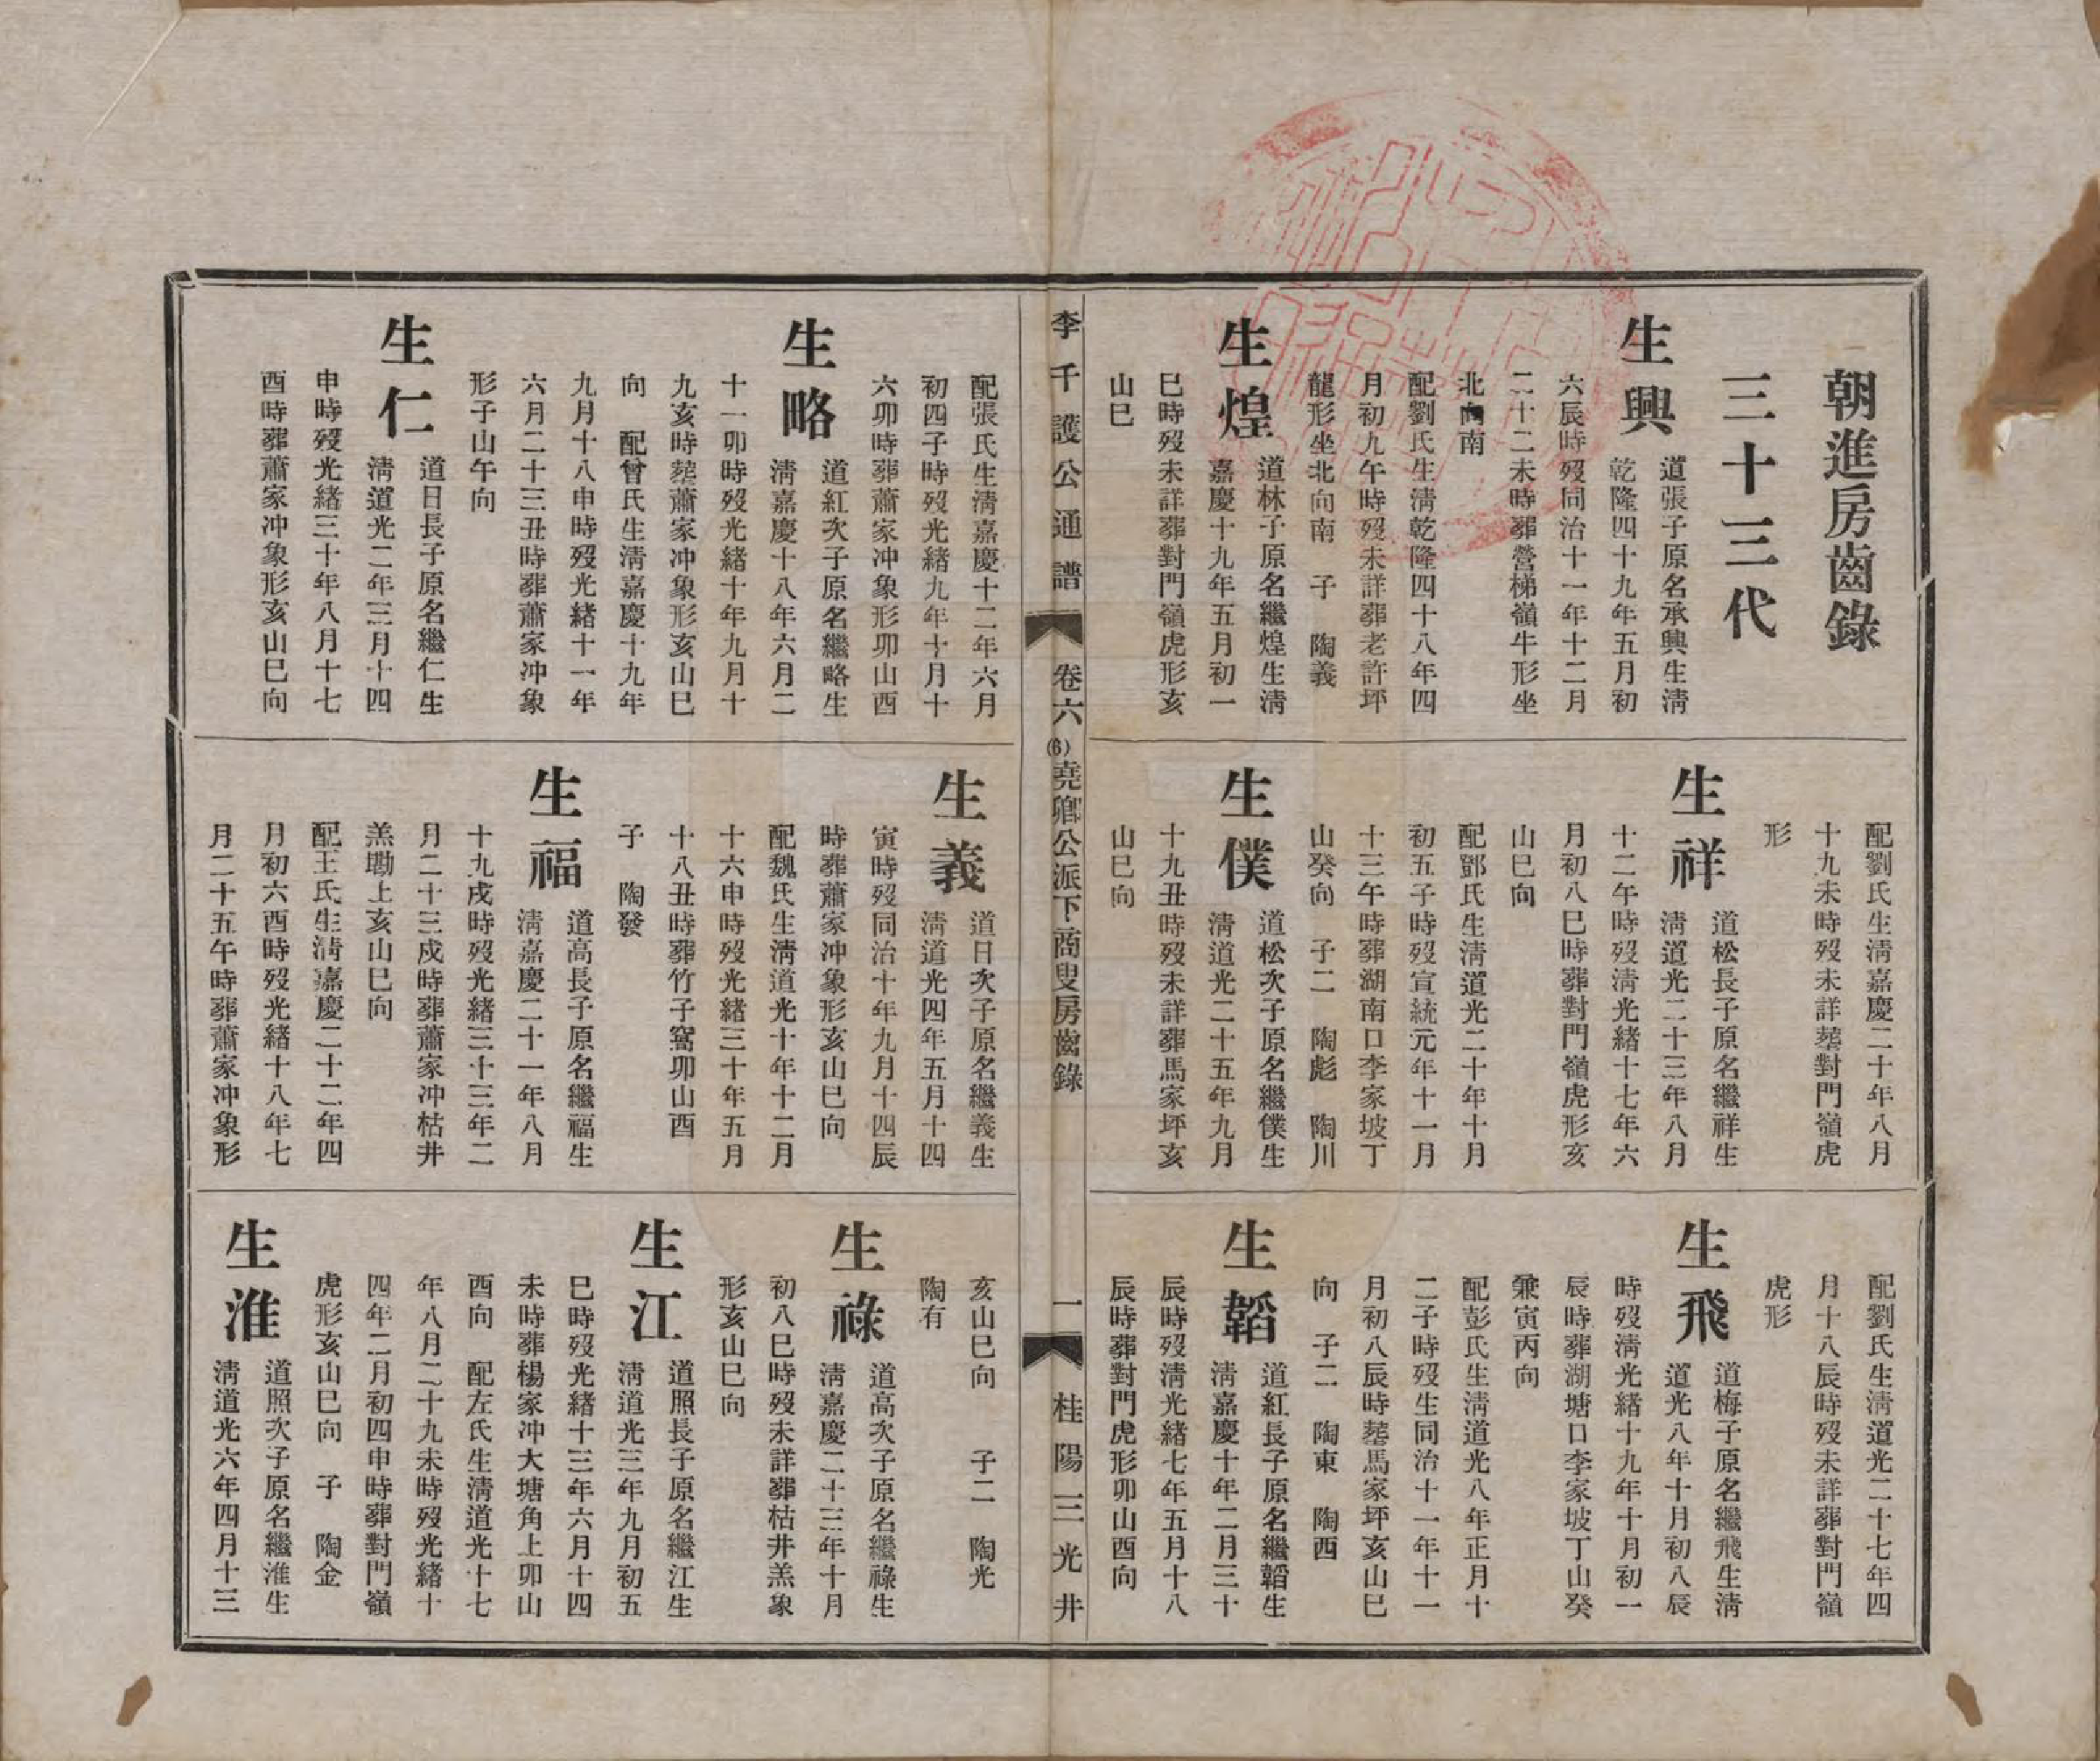 朝進房齒錄
三十三代
生興
道張子原名承興生淸
乾隆四十九年五月初
六辰時歿同治十一年十二月
二十二未時葬營梯嶺牛形坐
北向南
配劉氏生淸乾隆四十八年四
月初九午時歿未詳葬老許坪
龍形坐北向南　子　陶義
生煌
道林子原名繼煌生淸
嘉慶十九年五月初一
巳時歿未詳葬對門嶺虎形亥
山巳
配劉氏生淸嘉慶二十年八月
十九未時歿未詳塟對門嶺虎
形
生祥
道松長子原名繼祥生
淸道光二十三年八月
十二午時歿淸光緖十七年六
月初八巳時葬對門嶺虎形亥
山巳向
配鄧氏生淸道光二十年十月
初五子時歿宣統元年十一月
十三午時葬湖南口李家坡丁
山癸向　子二　陶彪　陶川
生僕
道松次子原名繼僕生
淸道光二十五年九月
十九丑時歿未詳葬馬家坪亥
山巳向
配劉氏生淸道光二十七年四
月十八辰時歿未詳葬對門嶺
虎形
生飛
道梅子原名繼飛生淸
道光八年十月初八辰
時歿淸光緖十九年十月初一
辰時葬湖塘口李家坡丁山癸
兼寅丙向
配彭氏生淸道光八年正月十
二子時歿生同治十一年十一
月初八辰時塟馬家坪亥山巳
向　子二　陶東　陶西
生韜
道紅長子原名繼韜生
淸嘉慶十年二月三十
辰時歿淸光緖七年五月十八
辰時葬對門虎形卯山酉向
李千護公通譜
卷六
(6)堯卿公派下商叟房齒錄
一
桂陽三光井
配張氏生淸嘉慶十二年六月
初四子時歿光緖九年十月十
六卯時葬蕭家冲象形卯山酉
生略
道紅次子原名繼略生
淸嘉慶十八年六月二
十一卯時歿光緖十年九月十
九亥時塟蕭家冲象形亥山巳
向　配曾氏生淸嘉慶十九年
九月十八申時歿光緖十一年
六月二十三丑時葬蕭家冲象
形子山午向
生仁
道日長子原名繼仁生
淸道光二年三月十四
申時歿光緖三十年八月十七
酉時葬蕭家冲象形亥山巳向
生義
道日次子原名繼義生
淸道光四年五月十四
寅時歿同治十年九月十四辰
時葬蕭家冲象形亥山巳向
配魏氏生淸道光十年十二月
十六申時歿光緖三十年五月
十八丑時葬竹子窩卯山酉
子　陶發
生福
道高長子原名繼福生
淸嘉慶二十一年八月
十九戌時歿光緖三十三年二
月二十三戍時葬蕭家冲枯井
羔墈上亥山巳向
配王氏生淸嘉慶二十二年四
月初六酉時歿光緖十八年七
月二十五午時葬蕭家冲象形
亥山巳向　子二　陶光
陶有
生祿
道高次子原名繼祿生
淸嘉慶二十三年十月
初八巳時歿未詳葬枯井羔象
形亥山巳向
生江
道照長子原名繼江生
淸道光三年九月初五
巳時歿光緖十三年六月十四
未時葬楊家冲大塘角上卯山
酉向　配左氏生淸道光十七
年八月二十九未時歿光緖十
四年二月初四申時葬對門嶺
虎形亥山巳向　子　陶金
生淮
道照次子原名繼淮生
淸道光六年四月十三